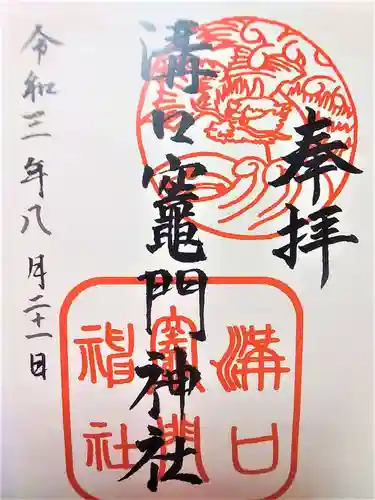 奉拝
溝口竈門神社
令和三年八月二十一日
溝口
竈門
神社